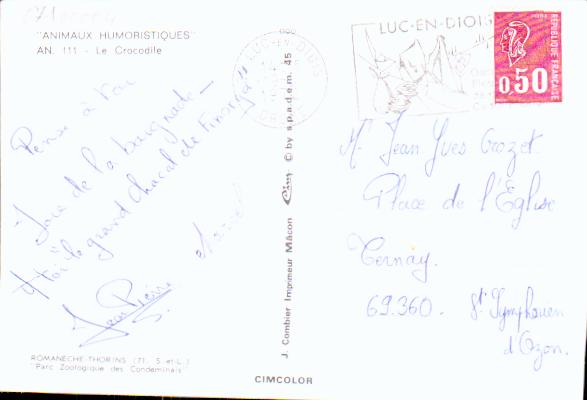 "ANIMAUX HUMORISTIQUES"
AN. 111 - Le Crocodile
Pense à toi
Joie de la baignade
toi "le grand Chacal de
Jean Pierre
ROMANÈCHE-THORINS (71. S.-et-L.)
"Parc Zoologique des Condeminais"
J. Combier Imprimeur Mâcon Cim © by s.p.a.d.e.m. 45
CIMCOLOR
LUC-EN-DIOIS
LUC-EN-DIOIS
0,50
REPUBLIQUE FRANÇAISE
M. Jean Yves Crozet
Place de l'Eglise
Ternay.
69.360. St Symphorien
d'Ozon.